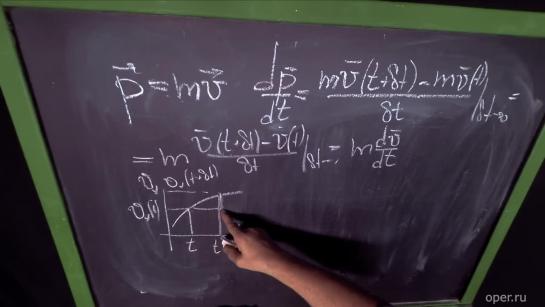 p⃗ = mv⃗   dp̄/dt = (mv̄(t+δt) − mv̄(t))/δt |δt→0 =
= m (v̄(t+δt) − v̄(t))/δt |δt→ = m dv̄/dt
v(t+δt)
v(t)
t t
oper.ru